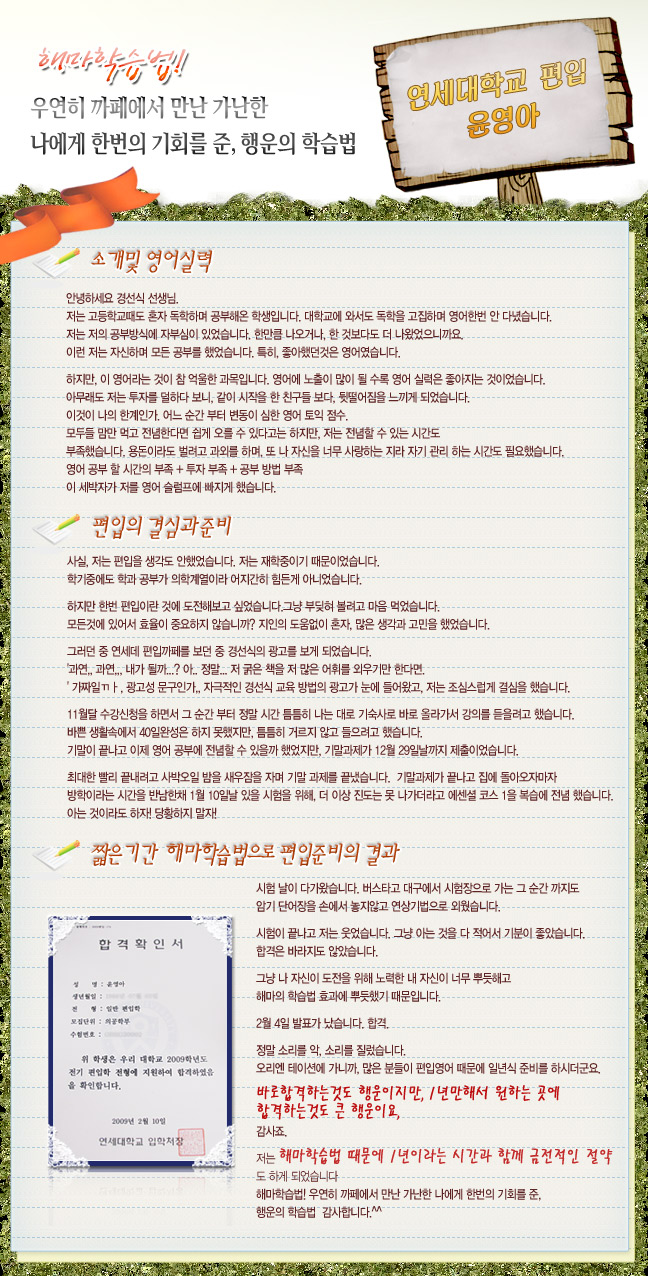 해마학습법!
우연히 까페에서 만난 가난한
나에게 한번의 기회를 준, 행운의 학습법
연세대학교 편입
윤영아
소개및 영어실력
안녕하세요 경선식 선생님.
저는 고등학교때도 혼자 독학하며 공부해온 학생입니다. 대학교에 와서도 독학을 고집하며 영어한번 안 다녔습니다.
저는 저의 공부방식에 자부심이 있었습니다. 한만큼 나오거나, 한 것보다도 더 나왔었으니까요.
이런 저는 자신하며 모든 공부를 했었습니다. 특히, 좋아했던것은 영어였습니다.
하지만, 이 영어라는 것이 참 억울한 과목입니다. 영어에 노출이 많이 될 수록 영어 실력은 좋아지는 것이었습니다.
아무래도 저는 투자를 덜하다 보니, 같이 시작을 한 친구들 보다, 뒷떨어짐을 느끼게 되었습니다.
이것이 나의 한계인가. 어느 순간 부터 변동이 심한 영어 토익 점수.
모두들 맘만 먹고 전념한다면 쉽게 오를 수 있다고는 하지만, 저는 전념할 수 있는 시간도
부족했습니다. 용돈이라도 벌려고 과외를 하며, 또 나 자신을 너무 사랑하는 지라 자기 관리 하는 시간도 필요했습니다.
영어 공부 할 시간의 부족 + 투자 부족 + 공부 방법 부족
이 세박자가 저를 영어 슬럼프에 빠지게 했습니다.
편입의 결심과 준비
사실, 저는 편입을 생각도 안했었습니다. 저는 재학중이기 때문이었습니다.
학기중에도 학과 공부가 의학계열이라 어지간히 힘든게 아니었습니다.
하지만 한번 편입이란 것에 도전해보고 싶었습니다.그냥 부딪혀 볼려고 마음 먹었습니다.
모든것에 있어서 효율이 중요하지 않습니까? 지인의 도움없이 혼자, 많은 생각과 고민을 했었습니다.
그러던 중 연세데 편입까페를 보던 중 경선식의 광고를 보게 되었습니다.
'과연,, 과연,,, 내가 될까...? 아.. 정말... 저 굵은 책을 저 많은 어휘를 외우기만 한다면.
' 가짜일ㄲㅏ, 광고성 문구인가,, 자극적인 경선식 교육 방법의 광고가 눈에 들어왔고, 저는 조심스럽게 결심을 했습니다.
11월달 수강신청을 하면서 그 순간 부터 정말 시간 틈틈히 나는 대로 기숙사로 바로 올라가서 강의를 듣을려고 했습니다.
바쁜 생활속에서 40일완성은 하지 못했지만, 틈틈히 거르지 않고 들으려고 했습니다.
기말이 끝나고 이제 영어 공부에 전념할 수 있을까 했었지만, 기말과제가 12월 29일날까지 제출이었습니다.
최대한 빨리 끝내려고 사박오일 밤을 새우잠을 자며 기말 과제를 끝냈습니다. 기말과제가 끝나고 집에 돌아오자마자
방학이라는 시간을 반납한채 1월 10일날 있을 시험을 위해, 더 이상 진도는 못 나가더라고 에센셜 코스 1을 복습에 전념 했습니다.
아는 것이라도 하자! 당황하지 말자!
짧은기간 해마학습법으로 편입준비의 결과
시험 날이 다가왔습니다. 버스타고 대구에서 시험장으로 가는 그 순간 까지도
암기 단어장을 손에서 놓지않고 연상기법으로 외웠습니다.
시험이 끝나고 저는 웃었습니다. 그냥 아는 것을 다 적어서 기분이 좋았습니다.
합격은 바라지도 않았습니다.
그냥 나 자신이 도전을 위해 노력한 내 자신이 너무 뿌듯해고
해마의 학습법 효과에 뿌듯했기 때문입니다.
2월 4일 발표가 났습니다. 합격.
정말 소리를 악, 소리를 질렀습니다.
오리엔 테이션에 가니까, 많은 분들이 편입영어 때문에 일년식 준비를 하시더군요.
바로합격하는것도 행운이지만, 1년만해서 원하는 곳에
합격하는것도 큰 행운이요,
감사죠.
저는 해마학습법 때문에 1년이라는 시간과 함께 금전적인 절약
도 하게 되었습니다
해마학습법! 우연히 까페에서 만난 가난한 나에게 한번의 기회를 준,
행운의 학습법 감사합니다.^^
합격확인서
성 명 : 윤영아
생년월일 :
전 형 : 일반 편입학
모집단위 : 의공학부
수험번호 :
위 학생은 우리 대학교 2009학년도
전기 편입학 전형에 지원하여 합격하였음
을 확인합니다.
2009년 2월 10일
연세대학교 입학처장